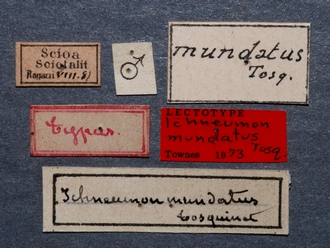 Scioa
Sciotalit
Ragazzi VIII.87
♂
mundatus
Tosq.
Typus.
LECTOTYPE
Ichneumon
mundatus
Tosq
Townes 1973
Ichneumon mundatus
Tosquinet